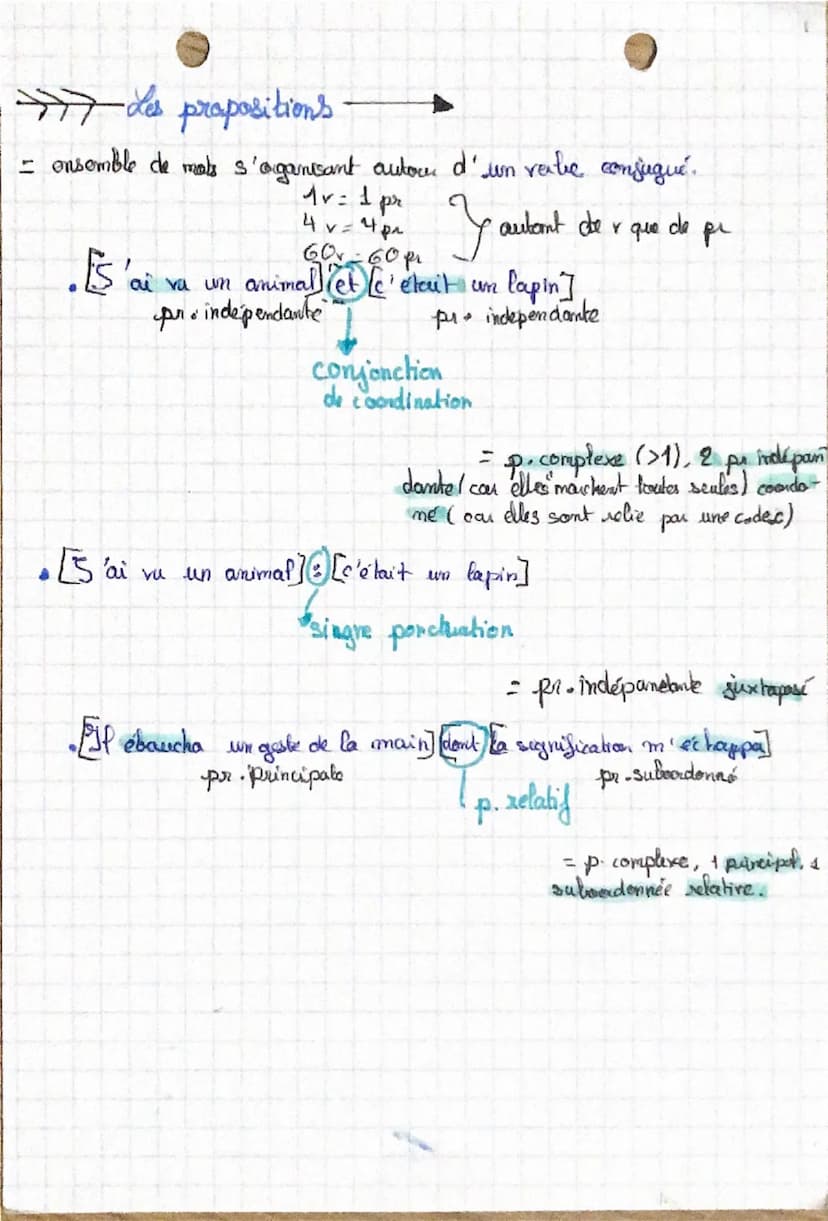 Les propositions
= ensemble de mots s'organisant autour d'un verbe conjugué.
1v = 1 pr
4 v = 4 pr
60v = 60 pr
autant de v que de pr
. [J'ai vu un animal] et [c'était un lapin]
pr. indépendante pr. indépendante
conjonction
de coordination
= p. complexe (>1), 2 pr indépan
dante (car elles "marchent toutes seules) coordo-
né (car elles sont relie par une codec)
. [J'ai vu un animal] : [c'était un lapin]
singre ponctuation
= pr. indépandante juxtaposé
. [Il ébaucha un geste de la main] [dont la signification m'échappa]
pr. principale pr. subordonné
p. relatif
= p. complexe, 1 principal, 1
subordonnée relative.